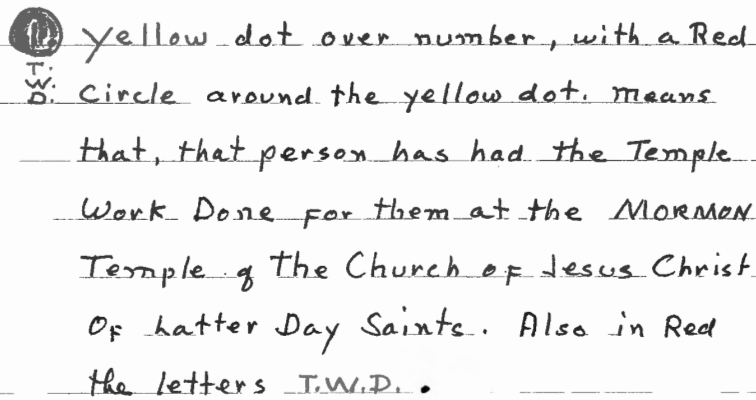 1. Yellow dot over number, with a Red
T.W.D. Circle around the yellow dot. means
that, that person has had the Temple
Work Done for them at the MORMON
Temple of The Church of Jesus Christ
Of Latter Day Saints. Also in Red
the letters T.W.D..